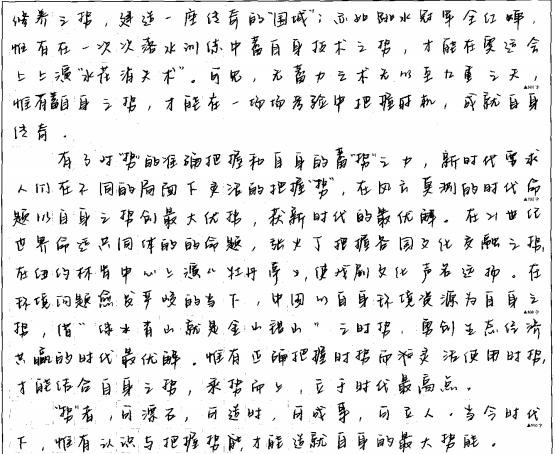 修养之势，建造一座传奇的“围城”；亦如跳水冠军全红婵，
惟有在一次次落水训练中蓄自身技术之势，才能在奥运会
上上演“水花消失术”。可见，无蓄力之术无以至九重之天，
惟有蓄自身之势，才能在一场场考验中把握时机，成就自身
传奇。
有了对“势”的准确把握和自身的蓄“势”之力，新时代要求
人们在不同的局面下灵活的把握“势”，在风云莫测的时代命
题以自身之势创最大优势，获新时代的最优解。在21世纪
世界命运共同体的的命题，张火丁把握各国文化交融之势，
在纽约林肯中心上演《牡丹亭》，使戏剧文化声名远扬。在
环境问题愈发严峻的当下，中国以自身环境资源为自身之
势，借“绿水青山就是金山银山”之时势，勇创生态经济
共赢的时代最优解。惟有正确把握时势而后灵活使用时势，
才能结合自身之势，乘势而上，立于时代最高点。
“势”者，可漂石，可造时，可成事，可立人。当今时代
下，惟有认识与把握势能，才能造就自身的最大势能。